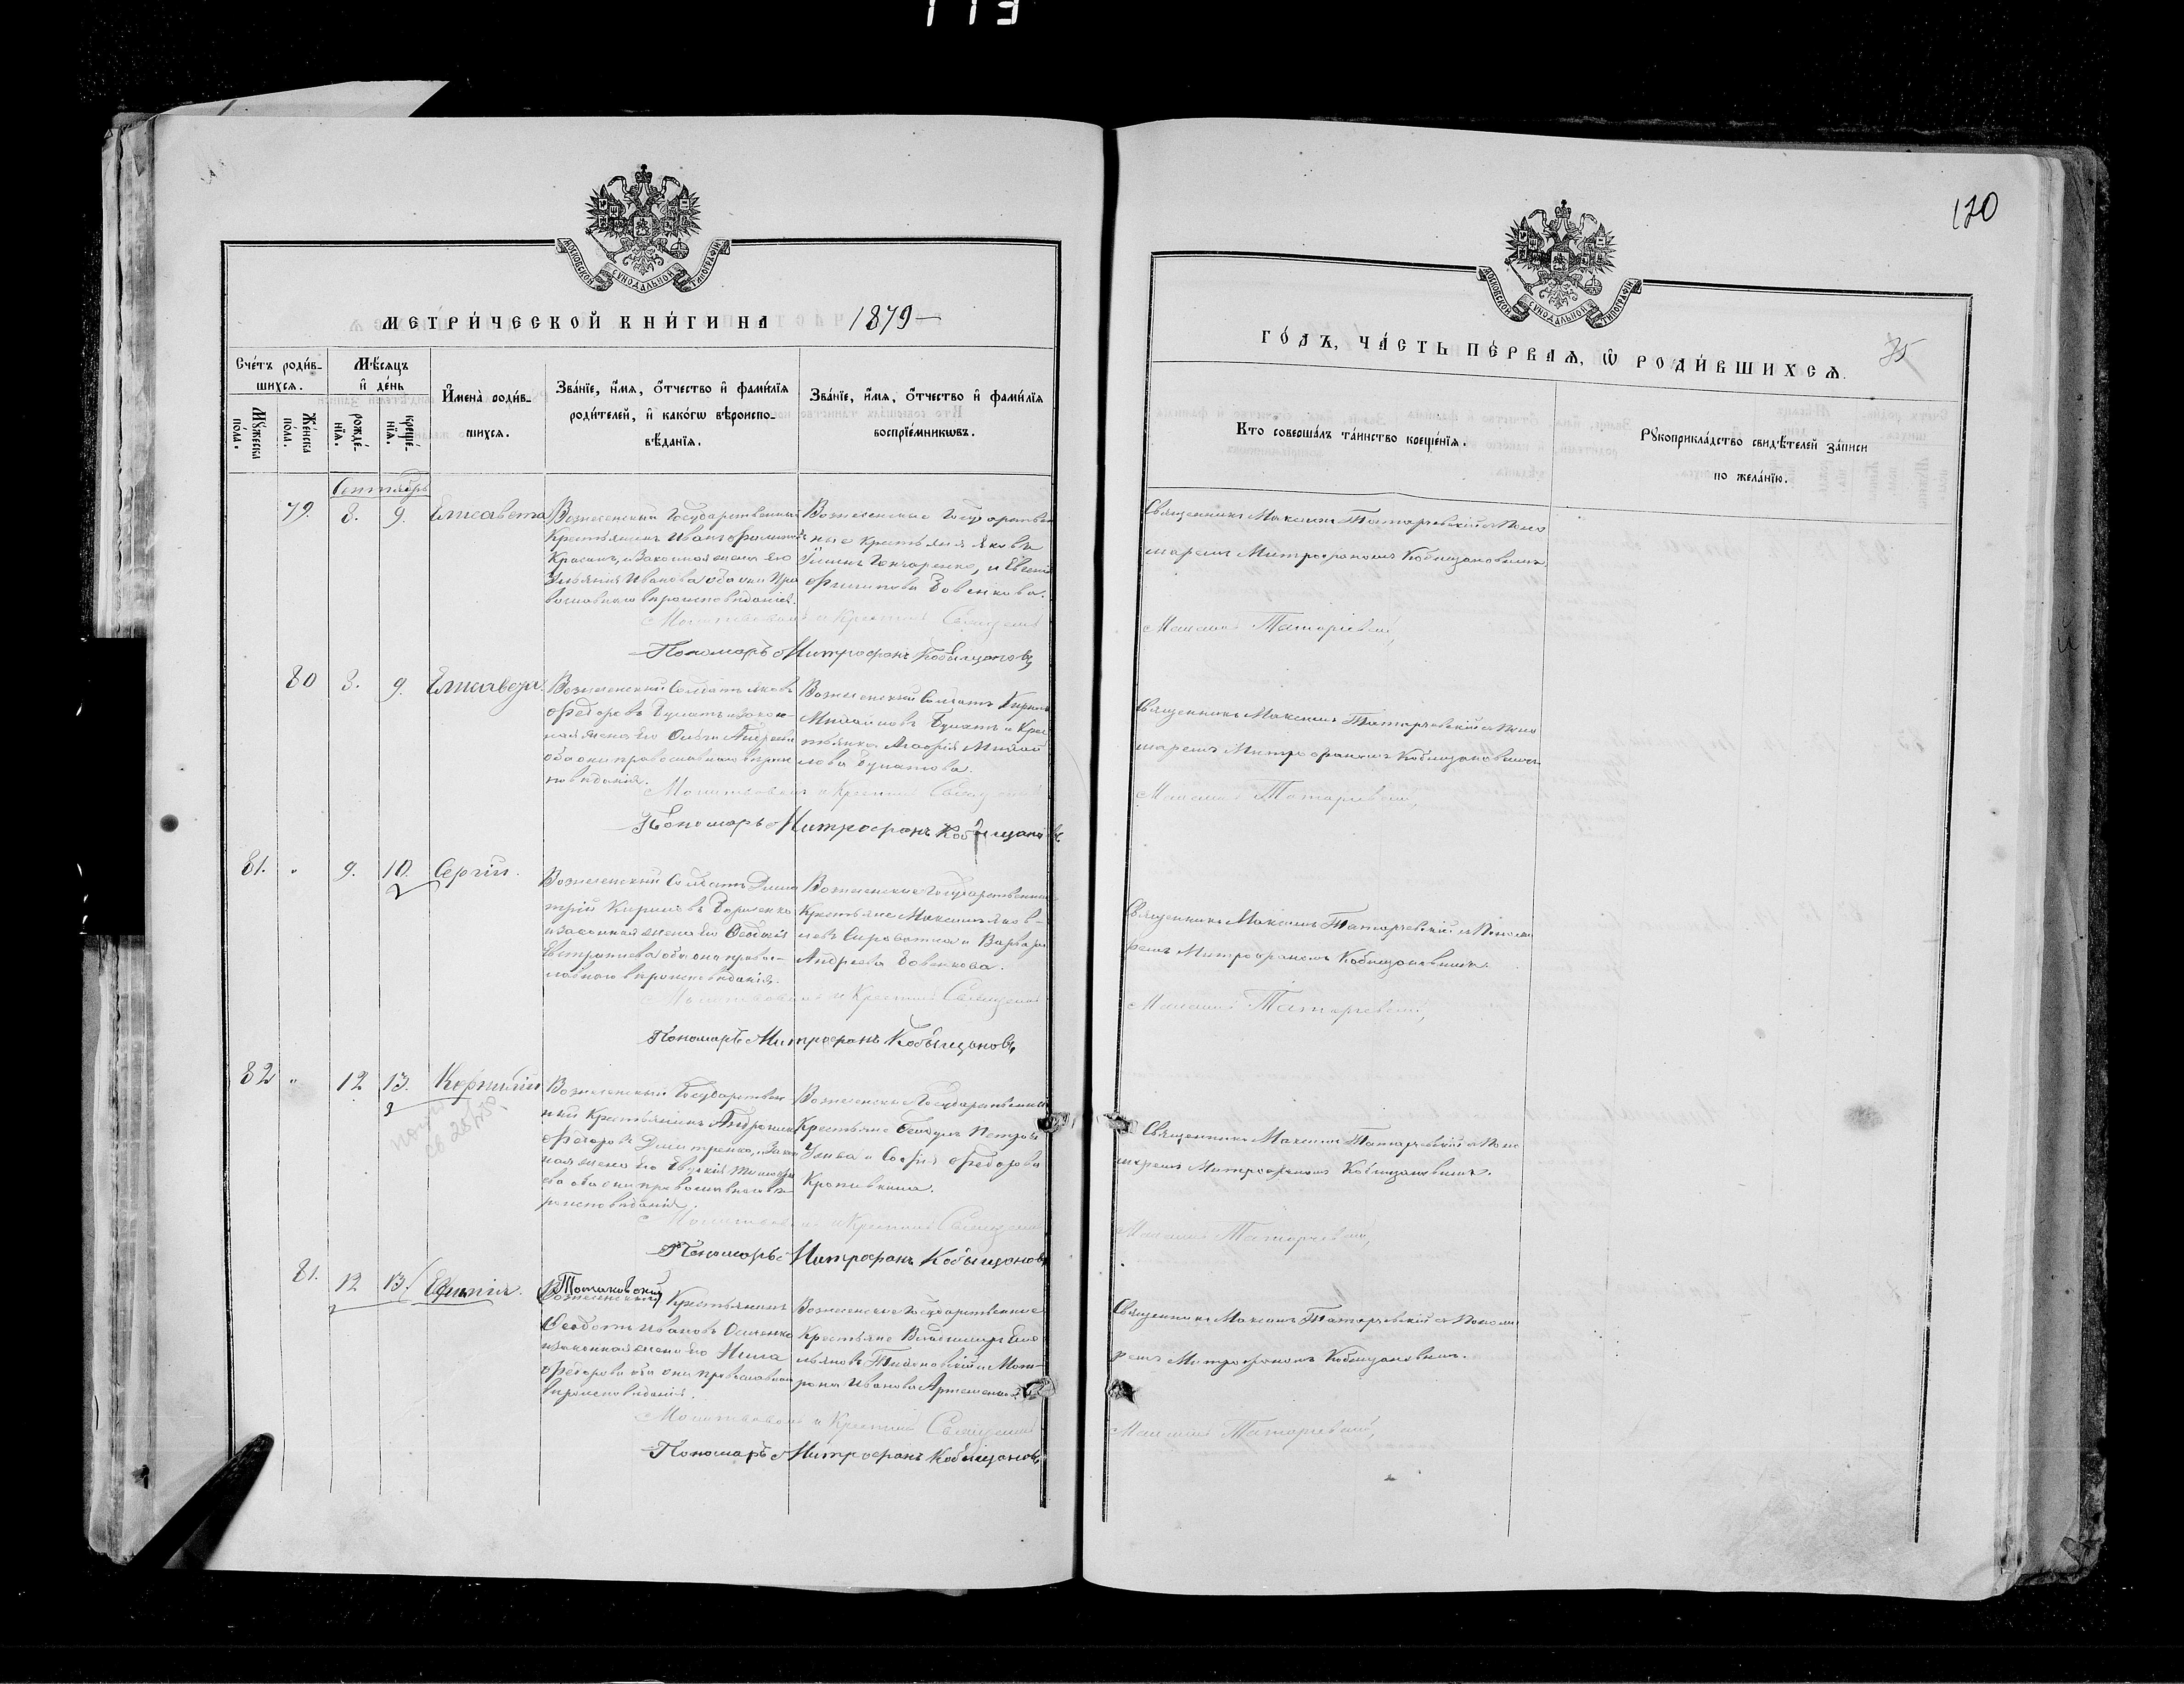 113
120
МОСКОВСКОЙ СѴНОДАЛЬНОЙ ТИПОГРАФІИ
МЕТРИ́ЧЕСКОЙ КНИ́ГИ НА 1879
Сче́тъ роди́в-
шихсѧ.
Мꙋ́жеска
по́ла.
Же́нска
по́ла.
Мѣ́сѧцъ
и҆ де́нь
рожде́-
нїѧ.
креще́-
нїѧ.
И҆мена̀ роди́в-
шихсѧ.
Зва́нїе, и҆́мѧ, ѻ҆́тчество и҆ фами́лїѧ
роди́телей, и҆ како́гѡ вѣроиспо-
вѣ́данїѧ.
Зва́нїе, и҆́мѧ, ѻ҆́тчество и҆ фами́лїѧ
воспрїе́мникѡвъ.
Сентябрь
79. 8. 9. Елисавета
Вознесенскій Государственный
Крестьянинъ Иванъ
и законная жена его
Иванова оба они Пра
вославнаго вѣроисповѣданія.
Вознесенские Государствен
ные крестьяне Яковъ
Гончаренко, и Евгенія
Филиппова Бовенкова.
Молитвовалъ и Крестилъ Священникъ
Пономарь Митрофанъ Кобыщановъ
80 8. 9. Елисавета.
Вознесенскій Солдатъ Яковъ
Федоровъ и закон-
ная жена его Ольга Андреева
оба они православнаго вѣроис
повѣданія.
Вознесенскій Солдатъ Кирилъ
Михайловъ и Крес
тьянка Агафія Михай
лова
Молитвовалъ и Крестилъ Священникъ
Пономарь Митрофанъ Кобыщановъ
81. " 9. 10. Сергій.
Вознесенскій Солдатъ Дими
трій Кириловъ
и законная жена его Феодосія
Евстратиева оба они правос-
лавнаго вѣроисповѣданія.
Вознесенские Государственные
Крестьяне Максимъ Яков-
левъ Сыроватка и Варвара
Андреева Бовенкова.
Молитвовалъ и Крестилъ Священникъ
Пономарь Митрофанъ Кобыщановъ
82 " 12 13. Корнилій
Вознесенскій Государствен
ный Крестьянинъ Андроникъ
Федоровъ Дмитренко, и закон
ная жена его Евдокія
оба они православнаго вѣ-
роисповѣданія.
Вознесенские Государственные
Крестьяне Петровъ
Улива и Софія Федорова
Кропивкина.
Молитвовалъ и Крестилъ Священникъ
Пономарь Митрофанъ Кобыщановъ
81. 12 13. Евфимія.
Томаковскій
Вознесенскій Крестьянинъ
Феодотъ Ивановъ Осипенко
и законная жена его
Федорова оба они православнаго
вѣроисповѣданія.
Вознесенские Государственные
Крестьяне Владимиръ Еме
льяновъ и Мат-
рона Иванова Артеменкова
Молитвовалъ и Крестилъ Священникъ
Пономарь Митрофанъ Кобыщановъ
МОСКОВСКОЙ СѴНОДАЛЬНОЙ ТИПОГРАФІИ
ГО́ДЪ, ЧА́СТЬ ПЕ́РВАѦ, Ѡ҆ РОДИ́ВШИХСѦ. 35
Кто соверша́лъ та́инство креще́нїѧ.
Рꙋкоприкла́дство свидѣ́телей за́писи
по жела́нїю.
Священникъ Максимъ Татарчевскій с Поно
маремъ Митрофаномъ Кобыщановымъ.
Максимъ Татарчевскій,
Священникъ Максимъ Татарчевскій с Поно
маремъ Митрофаномъ Кобыщановымъ.
Максимъ Татарчевскій,
Священникъ Максимъ Татарчевскій с Понома
ремъ Митрофаномъ Кобыщановымъ.
Максимъ Татарчевскій,
Священникъ Максимъ Татарчевскій с Поно
маремъ Митрофаномъ Кобыщановымъ.
Максимъ Татарчевскій,
Священникъ Максимъ Татарчевскій с Понома
ремъ Митрофаномъ Кобыщановымъ.
Максимъ Татарчевскій,